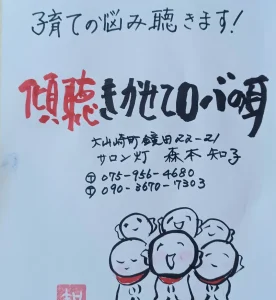 子育ての悩み聴きます!
傾聴きかせてロバの耳
大山崎町鏡田22-21
サロン灯 森本知子
☎075-956-4680
☎090-3670-7303